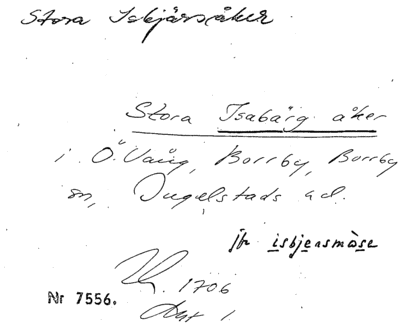 Stora Isbjärsåker
Stora Isabärg åker
i Ö. Vång, Borrby, Borrby
sn, Ingelstads hd.
jfr isbjersmåse
1706
Nr 7556.
Akt 1